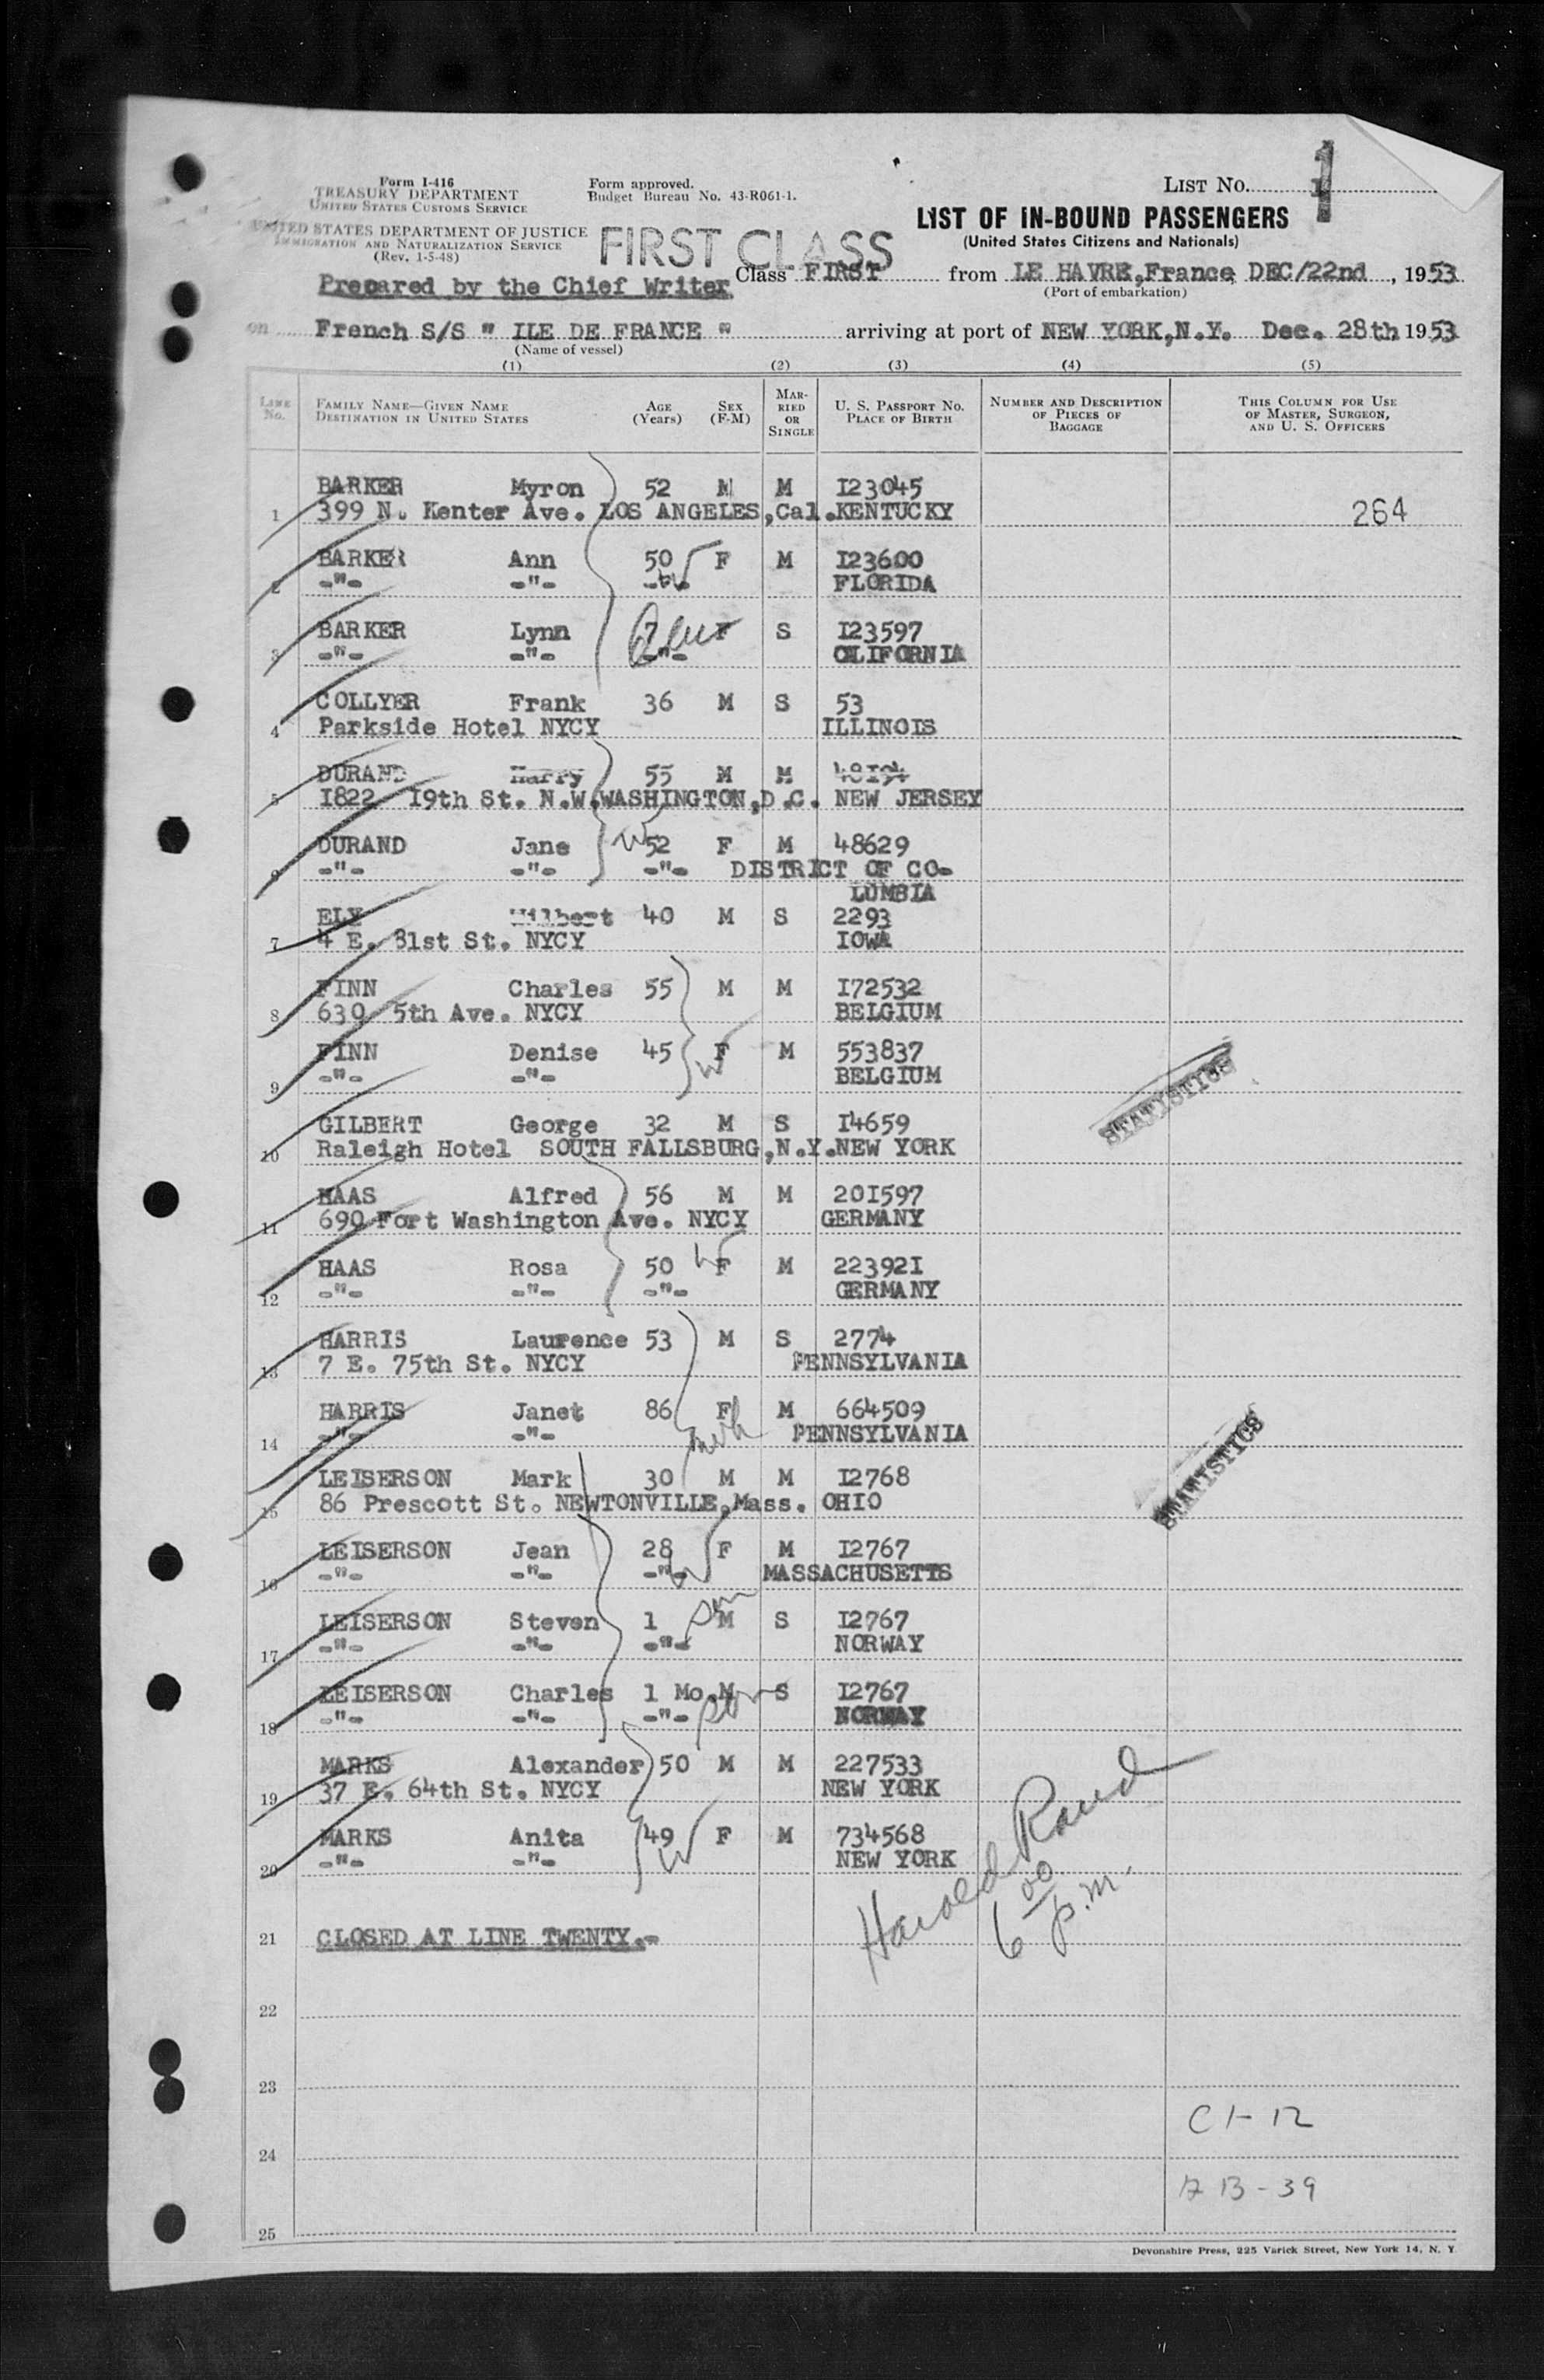 Form I-416
TREASURY DEPARTMENT
UNITED STATES CUSTOMS SERVICE
UNITED STATES DEPARTMENT OF JUSTICE
IMMIGRATION AND NATURALIZATION SERVICE
(Rev. 1-5-48)
Form approved.
Budget Bureau No. 43-R061-1.
LIST No. 1
LIST OF IN-BOUND PASSENGERS
(United States Citizens and Nationals)
FIRST CLASS
Prepared by the Chief Writer Class FIRST from LE HAVRE,France, DEC/22nd, 1953
(Port of embarkation)
on French S/S " ILE DE FRANCE " arriving at port of NEW YORK,N.Y. Dec. 28th 1953
(Name of vessel)
(1) (2) (3) (4) (5)
LINE No. FAMILY NAME—GIVEN NAME DESTINATION IN UNITED STATES AGE (Years) SEX (F-M) MARRIED OR SINGLE U. S. PASSPORT No. PLACE OF BIRTH NUMBER AND DESCRIPTION OF PIECES OF BAGGAGE THIS COLUMN FOR USE OF MASTER, SURGEON, AND U. S. OFFICERS
BARKER Myron 52 M M I23045
1 399 N. Kenter Ave. LOS ANGELES,Cal. KENTUCKY 264
BARKER Ann 50 F M I23600
2 -"- -"- -"- FLORIDA
BARKER Lynn 7 F S I23597
3 -"- -"- -"- CALIFORNIA
COLLYER Frank 36 M S 53
4 Parkside Hotel NYCY ILLINOIS
DURAND Harry 55 M M 48I94
5 I822 I9th St. N.W.WASHINGTON,D.C. NEW JERSEY
DURAND Jane 52 F M 48629
6 -"- -"- -"- DISTRICT OF CO-
LUMBIA
ELY Wilbert 40 M S 2293
7 4 E. 81st St. NYCY IOWA
FINN Charles 55 M M I72532
8 630 5th Ave. NYCY BELGIUM
FINN Denise 45 F M 553837
9 -"- -"- BELGIUM
GILBERT George 32 M S I4659
10 Raleigh Hotel SOUTH FALLSBURG,N.Y. NEW YORK
STATISTICS
HAAS Alfred 56 M M 20I597
11 690 Fort Washington Ave. NYCY GERMANY
HAAS Rosa 50 F M 22392I
12 -"- -"- -"- GERMANY
HARRIS Laurence 53 M S 2774
13 7 E. 75th St. NYCY PENNSYLVANIA
HARRIS Janet 86 F M 664509
14 -"- -"- PENNSYLVANIA
STATISTICS
LEISERSON Mark 30 M M I2768
15 86 Prescott St. NEWTONVILLE,Mass. OHIO
LEISERSON Jean 28 F M I2767
16 -"- -"- -"- MASSACHUSETTS
LEISERSON Steven 1 M S I2767
17 -"- -"- -"- NORWAY
LEISERSON Charles 1 Mo. M S I2767
18 -"- -"- -"- NORWAY
MARKS Alexander 50 M M 227533
19 37 E. 64th St. NYCY NEW YORK
MARKS Anita 49 F M 734568
20 -"- -"- NEW YORK
Harold Rand
6 00 p.m.
21 CLOSED AT LINE TWENTY.-
22
23
C1-12
24
AB-39
25
Devonshire Press, 225 Varick Street, New York 14, N. Y.